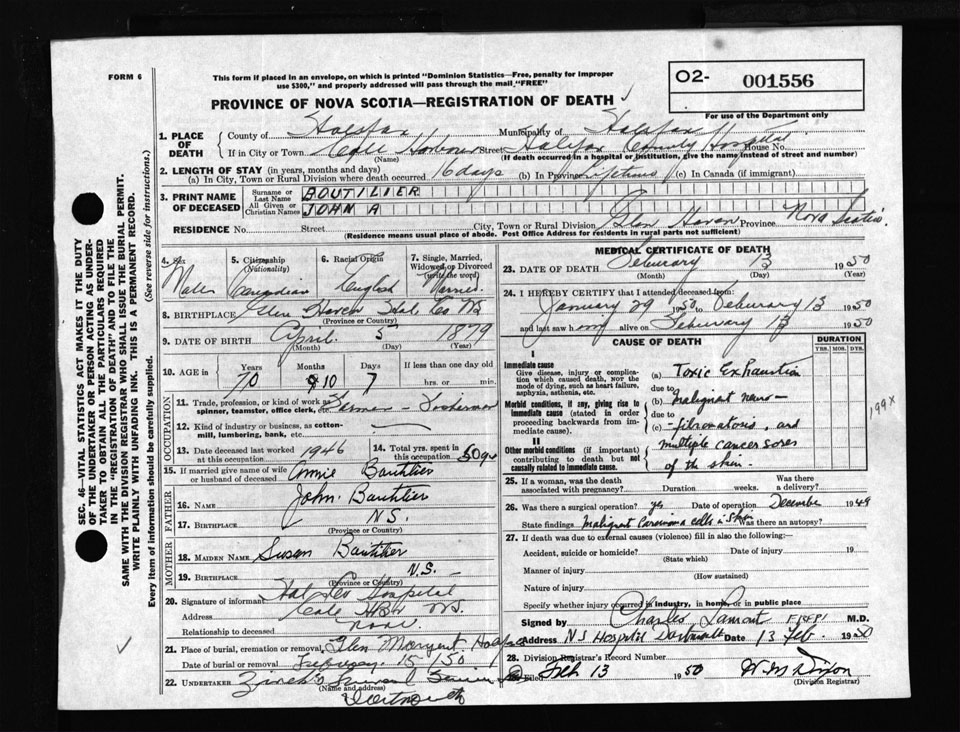 FORM 6
This form if placed in an envelope, on which is printed "Dominion Statistics—Free, penalty for improper
use $300," and properly addressed will pass through the mail "FREE"
O2- 001556
For use of the Department only
PROVINCE OF NOVA SCOTIA—REGISTRATION OF DEATH
1. PLACE OF DEATH
County of Halifax Municipality of Halifax
If in City or Town Cole Harbour Street Halifax County Hospital House No.
(Name) (If death occurred in a hospital or institution, give the name instead of street and number)
2. LENGTH OF STAY (in years, months and days)
(a) In City, Town or Rural Division where death occurred 16 days (b) In Province Lifetime (c) In Canada (if immigrant)
3. PRINT NAME OF DECEASED
Surname or Last Name BOUTILIER
All Given or Christian Names JOHN A
RESIDENCE No. Street City, Town or Rural Division Glen Haven Province Nova Scotia
(Residence means usual place of abode. Post Office Address for residents in rural parts not sufficient)
4. Sex Male
5. Citizenship (Nationality) Canadian
6. Racial Origin English
7. Single, Married, Widowed or Divorced (write the word) Married
8. BIRTHPLACE Glen Haven Hal. Co NS
(Province or Country)
9. DATE OF BIRTH April 5 1879
(Month) (Day) (Year)
10. AGE in Years 70 Months 10 Days 7 If less than one day old hrs. or min.
OCCUPATION
11. Trade, profession, or kind of work as spinner, teamster, office clerk, etc. Farmer - Fisherman
12. Kind of industry or business, as cotton-mill, lumbering, bank, etc.
13. Date deceased last worked at this occupation 1946
14. Total yrs. spent in this occupation 50 yrs
15. If married give name of wife or husband of deceased Annie Boutilier
FATHER
16. Name John Boutilier
17. Birthplace N.S.
(Province or Country)
MOTHER
18. Maiden Name Susan Boutilier
19. Birthplace N.S.
(Province or Country)
20. Signature of informant Hal Co Hospital
Address Cole Hbr NS.
Relationship to deceased none
21. Place of burial, cremation or removal Glen Margaret Halifax
Date of burial or removal February 15-1950
22. UNDERTAKER Zinck's Funeral Service
(Name and address)
Dartmouth
MEDICAL CERTIFICATE OF DEATH
23. DATE OF DEATH February 13 1950
(Month) (Day) (Year)
24. I HEREBY CERTIFY that I attended deceased from:
January 29 1950 to February 13 1950
and last saw him alive on February 13 1950
CAUSE OF DEATH
DURATION
YRS. MOS. DYS.
I
Immediate cause
Give disease, injury or complication which caused death, NOT the mode of dying, such as heart failure, asphyxia, asthenia, etc.
Morbid conditions, if any, giving rise to immediate cause (stated in order proceeding backwards from immediate cause).
II
Other morbid conditions (if important) contributing to death but not causally related to immediate cause.
(a) Toxic Exhaustion
due to
(b) malignant neuro-
due to
(c) -fibromatosis, and
multiple cancer sores
of the skin.
199X
25. If a woman, was the death associated with pregnancy? Duration weeks. Was there a delivery?
26. Was there a surgical operation? yes Date of operation December 1949
State findings malignant Carcinoma cells in Skin Was there an autopsy?
27. If death was due to external causes (violence) fill in also the following:—
Accident, suicide or homicide? Date of injury 19
(State which)
Manner of injury
(How sustained)
Nature of injury
Specify whether injury occurred in industry, in home, or in public place
Signed by Charles Lamont M.D.
Address N S Hospital Dartmouth Date 13 Feb. 1950
28. Division Registrar's Record Number
Filed Feb 13 1950
(Division Registrar)
SEC. 46—VITAL STATISTICS ACT MAKES IT THE DUTY
OF THE UNDERTAKER OR PERSON ACTING AS UNDER-
TAKER TO OBTAIN ALL THE PARTICULARS REQUIRED
IN THE "REGISTRATION OF DEATH" AND TO FILE THE
SAME WITH THE DIVISION REGISTRAR WHO SHALL ISSUE THE BURIAL PERMIT.
WRITE PLAINLY WITH UNFADING INK. THIS IS A PERMANENT RECORD.
Every item of information should be carefully supplied. (See reverse side for instructions.)